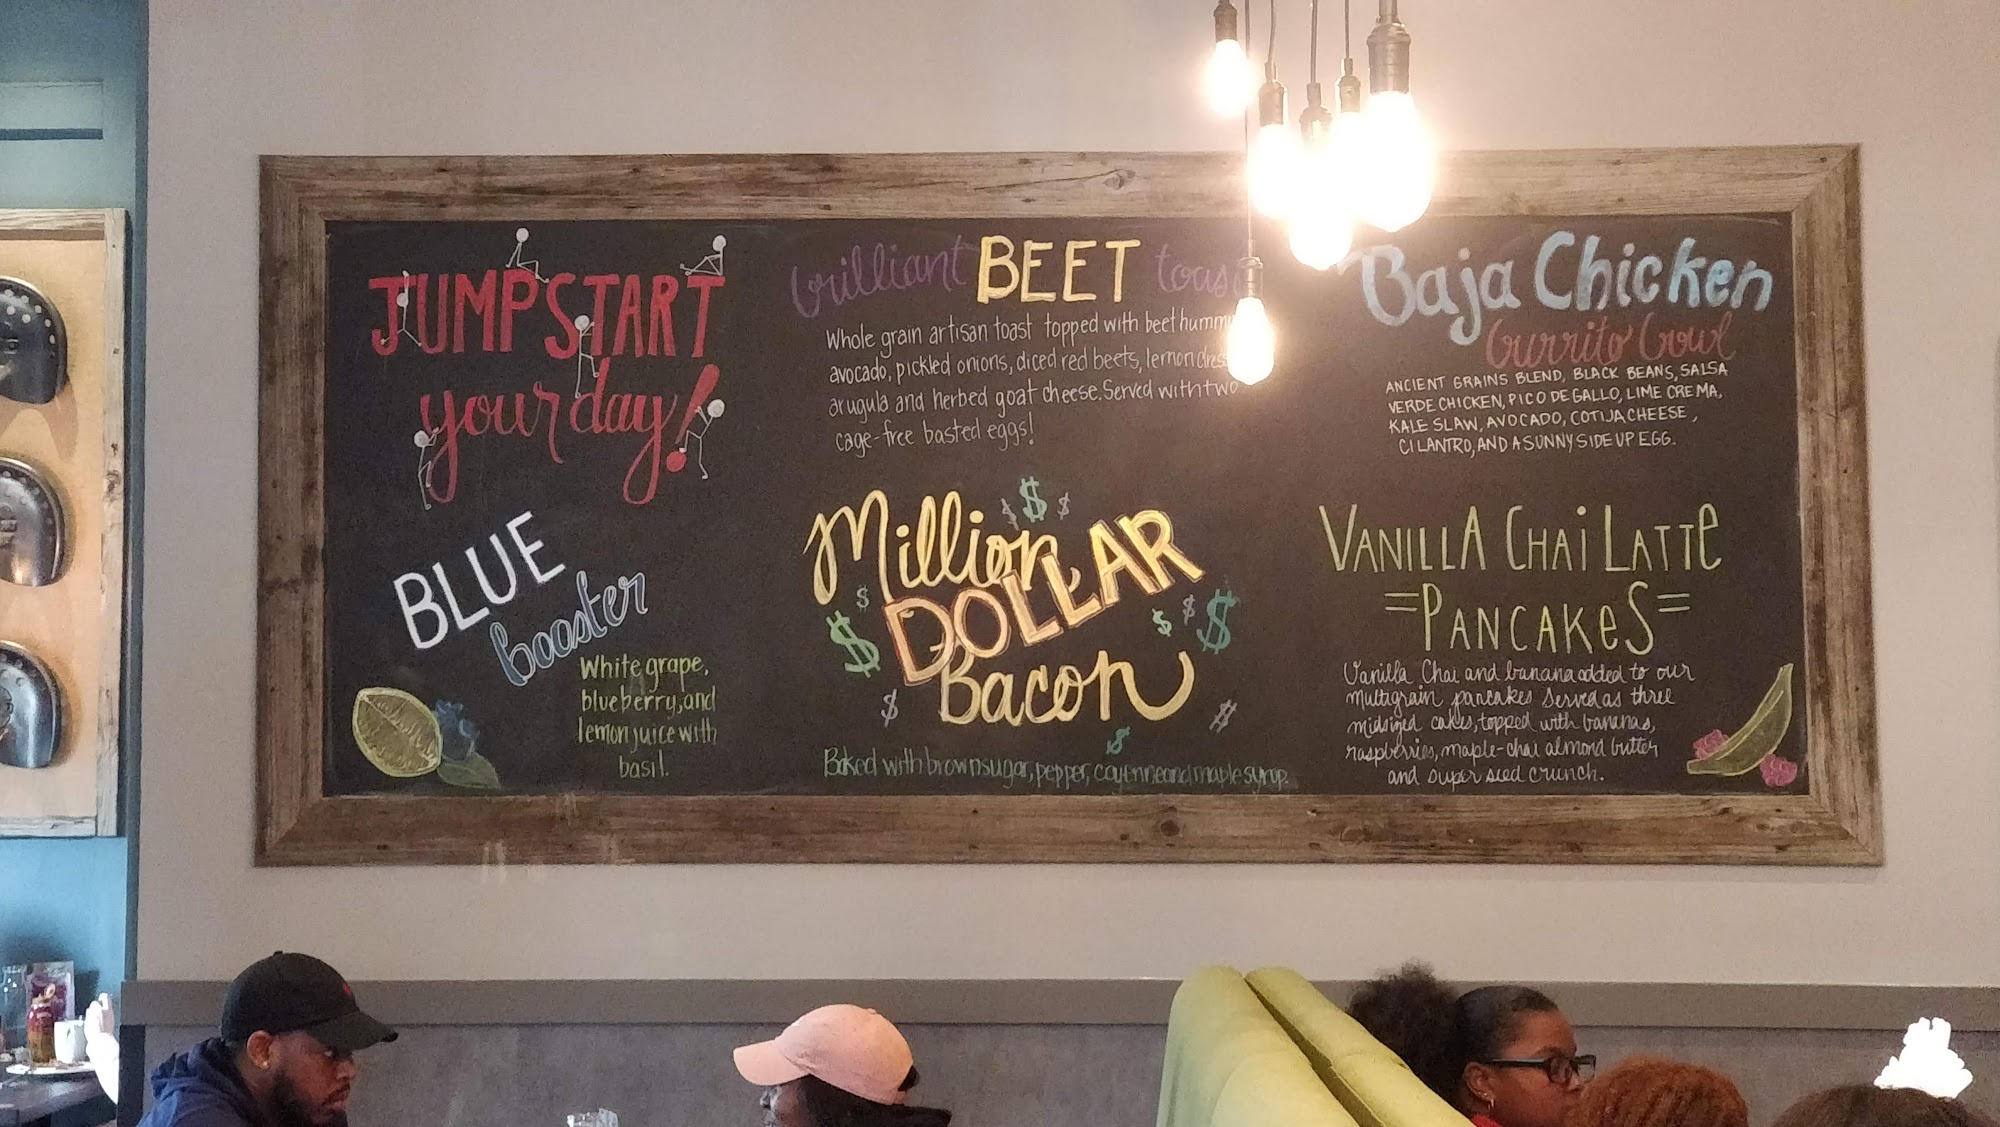 JUMPSTART
your day!
BLUE
booster
White grape,
blueberry, and
lemon juice with
basil.
brilliant BEET toast
Whole grain artisan toast topped with beet hummus
avocado, pickled onions, diced red beets, lemon
arugula and herbed goat cheese. Served with two
cage-free basted eggs!
Million
DOLLAR
Bacon
Baked with brown sugar, pepper, cayenne and maple syrup.
Baja Chicken
burrito bowl
ANCIENT GRAINS BLEND, BLACK BEANS, SALSA
VERDE CHICKEN, PICO DE GALLO, LIME CREMA,
KALE SLAW, AVOCADO, COTIJA CHEESE,
CILANTRO, AND A SUNNY SIDE UP EGG.
VANILLA CHAI LATTE
=PANCAKES=
Vanilla Chai and banana added to our
multigrain pancakes served as three
midsized cakes, topped with bananas,
raspberries, maple-chai almond butter
and super seed crunch.